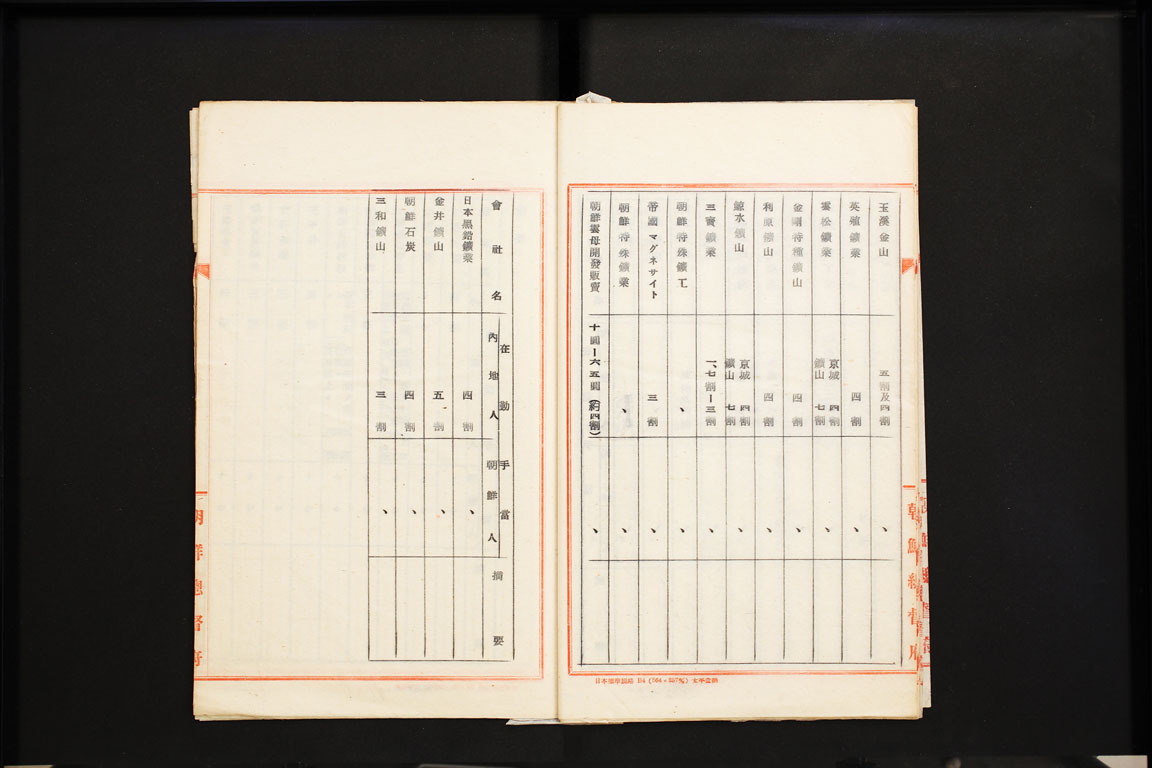 玉溪金山 五割及四割 、
英殖鑛業 四割 、
雲松鑛業 京城 四割 鑛山 七割 、
金剛特種鑛山 四割 、
利原鑛山 四割 、
鯨水鑛山 京城 四割 鑛山 七割 、
三寶鑛業 一、七割ー三割 、
朝鮮特殊鑛工 、 、
帝國マグネサイト 三割 、
朝鮮特殊鑛業 、 、
朝鮮雲母開發販賣 十圓ー六五圓(約四割) 、
日本標準規格 B4
朝鮮總督府
會社名 在勤手當 內地人 朝鮮人 摘要
日本黑鉛鑛業 四割 、
金井鑛山 五割 、
朝鮮石炭 四割 、
三和鑛山 三割 、
朝鮮總督府